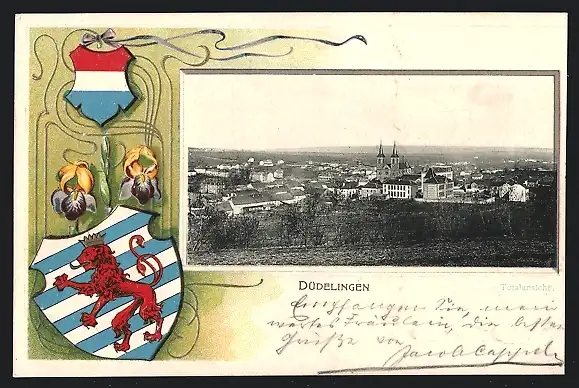 DÜDELINGEN
Totalansicht.
Empfangen Sie, mein
wertes Fräulein, die besten
Grüße von Jacob Cappel